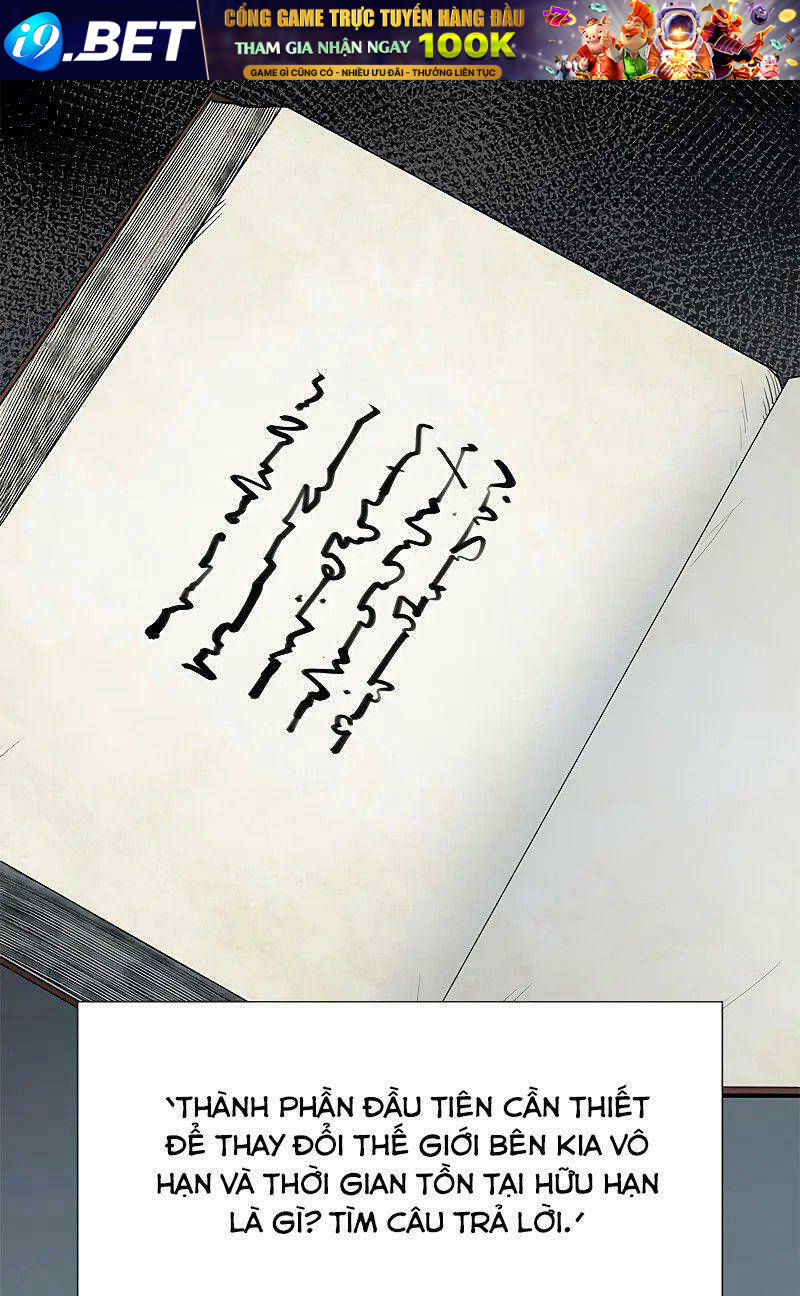 i9.BET
CỔNG GAME TRỰC TUYẾN HÀNG ĐẦU
THAM GIA NHẬN NGAY 100K
GAME GÌ CŨNG CÓ - NHIỀU ƯU ĐÃI - THƯỞNG LIÊN TỤC
'THÀNH PHẦN ĐẦU TIÊN CẦN THIẾT
ĐỂ THAY ĐỔI THẾ GIỚI BÊN KIA VÔ
HẠN VÀ THỜI GIAN TỒN TẠI HỮU HẠN
LÀ GÌ? TÌM CÂU TRẢ LỜI.'